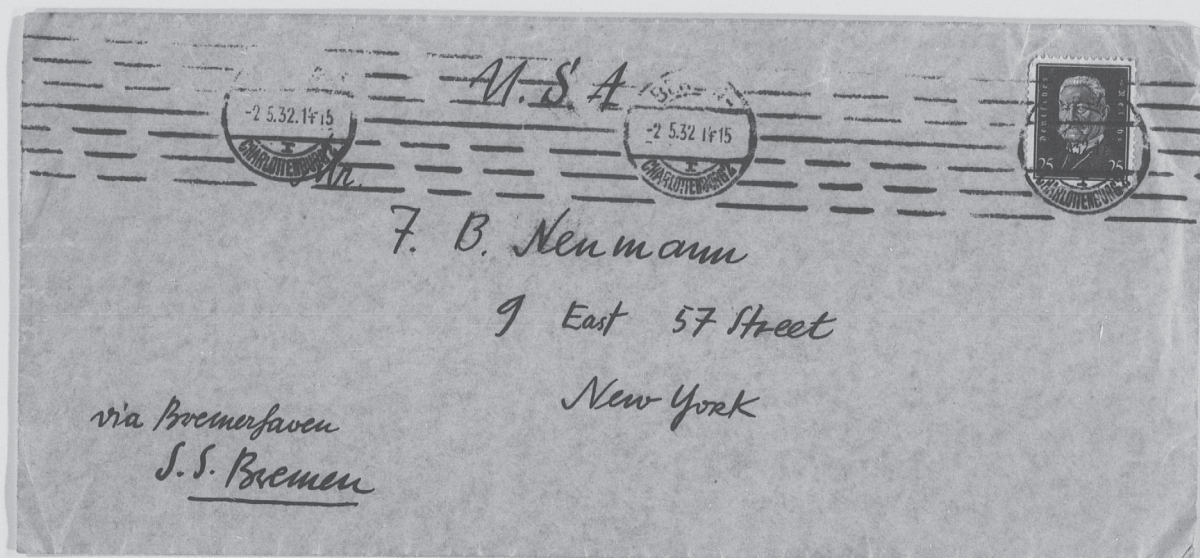 U.S.A
-2.5.32.14-15
CHARLOTTENBURG 2
-2.5.32 14-15
CHARLOTTENBURG 2
25 25
CHARLOTTENBURG 2
Mr.
J. B. Neumann
9 East 57 Street
New York
via Bremerhaven
S.S. Bremen